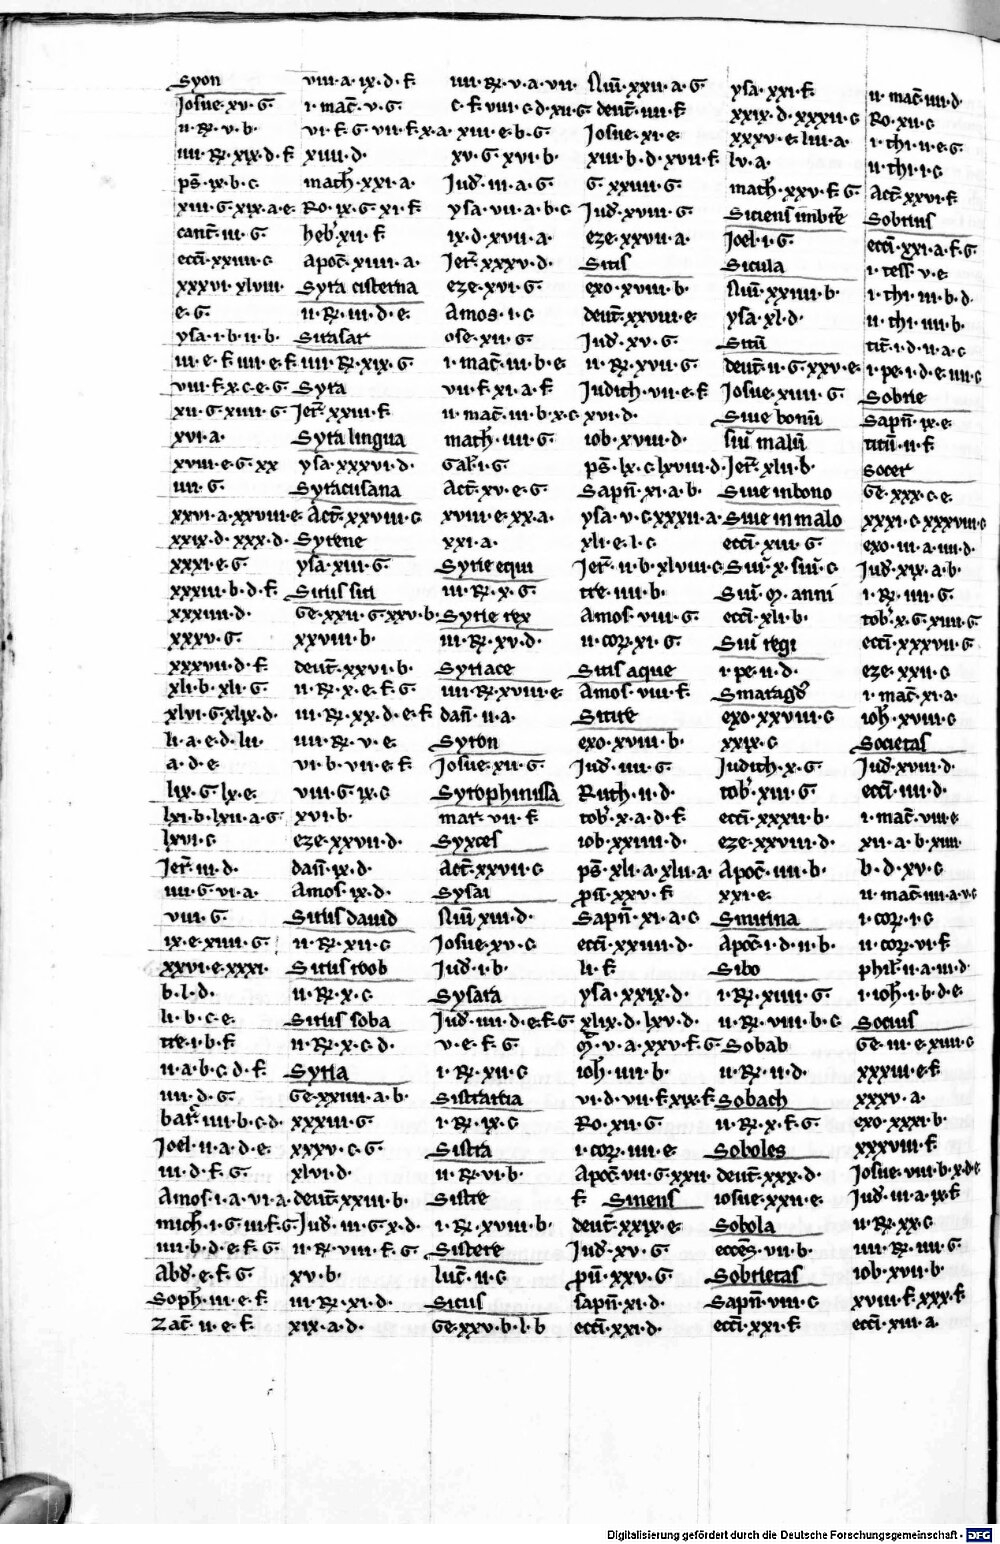 Syon
Josue·xv·G
ii·R·v·b·
iiii·R·xix·d·f
ps·ix·b·c
xiii·G·xix·a·e·
cant·iii·G
ecci·xxiiii·c
xxxvi·xlviii·
e·G
ysa·i·b·ii·b·
iii·e·f·iiii·e·f
viii·f·x·c·e·G
xii·G·xiiii·G
xvi·a·
xviii·e·G·xx
iiii·G·
xxvi·a·xxviii·e·
xxix·d·xxx·d·
xxxi·e·G
xxxiii·b·d·f
xxxiiii·d·
xxxv·G
xxxvii·d·f
xli·b·xli·G
xlvi·G·xlix·d·
li·a·e·d·lii·
a·d·e·
lix·G·lx·e·
lxi·b·lxii·a·G
lxvi·c
Jer·iii·d·
iiii·G·vi·a·
viii·G·
ix·e·xiiii·G
xxvi·e·xxxi·
b·l·d·
li·b·c·e·
tre·i·b·f
ii·a·b·c·d·f
iiii·d·G·
bar·iiii·b·c·d·
Joel·ii·a·d·e·
iii·d·f·G·
Amos·i·a·vi·a·
mich·i·G·iii·f·G·
iiii·b·d·e·f·G
Abd·e·f·G
Soph·iii·e·f
Zac·ii·e·f
viii·a·ix·d·f
i·mac·v·G
vi·f·G·vii·f·x·a·
xiiii·d·
math·xxi·a·
Ro·ix·G·xi·f
heb·xii·f
Apoc·xiiii·a·
Syra cisterna
ii·R·iii·d·e·
Sirasar
iiii·R·xix·G
Syra
Jer·xxiii·f
Syra lingua
ysa·xxxvi·d·
Syracusana
Act·xxviii·c
Syrene
ysa·xiii·G
Sirus siri
Ge·xxii·G·xxv·b·
xxviii·b·
deut·xxvi·b·
ii·R·x·e·f·G
iii·R·xx·d·e·f
iiii·R·v·e·
vi·b·vii·e·f
viii·G·ix·c
xvi·b·
eze·xxvii·d·
dan·ix·d·
Amos·ix·d·
Sirus dauid
ii·R·xii·c
Sirus roob
ii·R·x·c
Sirus soba
ii·R·x·c·d·
Syria
Ge·xxiiii·a·b·
xxxiii·G
xxxv·c·G
xlvi·d·
deut·xxiii·b·
Jud·iii·G·x·d·
ii·R·viii·f·G
xv·b·
iii·R·xi·d·
xix·a·d·
iiii·R·v·a·vii·
c·f·viii·c·d·xii·G
xiii·e·b·G
xv·G·xvi·b·
Jud·iii·a·G
ysa·vii·a·b·c
ix·d·xvii·a·
Jer·xxxv·d·
eze·xvi·G
Amos·i·c
ose·xii·G
i·mac·iii·b·e
vii·f·xi·a·f
ii·mac·iii·b·x·c
math·iiii·G
Gal·i·G
Act·xv·e·G·
xviii·e·xx·a·
xxi·a·
Syrie equi
iii·R·x·G
Syrie rex
iii·R·xv·d·
Syriace
iiii·R·xviii·e
dan·ii·a·
Syron
Josue·xii·G
Syrophinissa
mar·vii·f
Syxces
Act·xxvii·c
Sysai
Nui·xiii·d·
Josue·xv·c
Jud·i·b·
Sysara
Jud·iiii·d·e·f·G
v·e·f·G
i·R·xii·c
Sistarcia
i·R·ix·c
Sistra
ii·R·vi·b·
Sistre
i·R·xviii·b·
Sistere
luc·ii·c
Situs
Ge·xxv·b·l·b
Nui·xxii·a·G
deut·iiii·f
Josue·xi·e
xiii·b·d·xvii·f
G·xxiiii·G
Jud·xviii·G
eze·xxvii·a·
Sitis
exo·xviii·b·
deut·xxviii·e
Jud·xv·G
ii·R·xvii·G
Judith·vii·e·f
xvi·d·
iob·xviii·d·
ps·lx·c·lxviii·d·
Sapn·xi·a·b·
ysa·v·c·xxxii·a·
xli·e·l·c
Jer·ii·b·xlviii·c
tre·iiii·b·
Amos·viii·G
ii·cor·xi·G
Sitis aque
Amos·viii·f
Sitire
exo·xviii·b·
Jud·iiii·G
Ruth·ii·d·
tob·x·a·d·f
iob·xxiiii·d·
ps·xli·a·xlii·a·
pu·xxv·f
Sapn·xi·a·c
ecci·xxiiii·d·
li·f
ysa·xxix·d·
xlix·d·lxv·d·
m·v·a·xxv·f·G
ioh·iiii·b·
vi·d·vii·f·xix·f
Ro·xii·G
i·cor·iiii·e
Apoc·vii·G·xxii
f Sinens
deut·xxix·e
Jud·xv·G
pu·xxv·G
sapn·xi·d·
ecci·xxi·d·
ysa·xxi·f
xxix·d·xxxii·c
xxxv·e·liii·a·
lv·a·
math·xxv·f·G
Sitiens imbre
Joel·i·G
Sicula
Nui·xxiiii·b·
ysa·xl·d·
Situ
deut·ii·G·xxv·e
Josue·xiiii·G
Siue bonu
siu malu
Jer·xlii·b·
Siue in bono
Siue in malo
ecci·xiii·G
Siu·x·siu·c
Siu·m·anni
ecci·xli·b·
Siu regi
i·pe·ii·d·
Smaragd
exo·xxviii·c
xxix·c
Judith·x·G
tob·xiii·G
ecci·xxxii·b·
eze·xxviii·d·
Apoc·iiii·b·
xxi·e·
Smirina
Apoc·i·d·ii·b·
Sibo
i·R·xiiii·G
ii·R·viii·b·c
Sobab
ii·R·ii·d·
Sobach
ii·R·x·f·G
Soboles
deut·xxx·d·
iosue·xxii·e·
Sobola
ecces·vii·b·
Sobrietas
Sapn·viii·c
ecci·xxi·f
ii·mac·iiii·d·
Ro·xii·c
i·thi·ii·e·G
ii·thi·i·c
Act·xxvi·f
Sobrius
ecci·xxi·a·f·G
i·tess·v·e·
i·thi·iii·b·d·
ii·thi·iiii·b·
tit·i·d·ii·a·c
i·pe·i·d·e·iiii·c
Sobrie
Sapn·ix·e·
titu·ii·f
Socer
Ge·xxx·c·e·
xxxi·c·xxxviii·c
exo·iii·a·iiii·d·
Jud·xix·a·b·
i·R·iiii·G
tob·x·G·xiiii·G
ecci·xxxvii·G
eze·xxii·c
i·mac·xi·a·
ioh·xviii·c
Societas
Jud·xviii·d·
ecci·iiii·d·
i·mac·viii·e
xii·a·b·xiiii·
b·d·xv·c
ii·mac·iiii·a·v·c
i·cor·i·c
ii·cor·vi·f
phil·ii·a·iii·d·
i·ioh·i·b·d·e
Socius
Ge·iii·e·xiiii·c
xxxiii·e·f
xxxv·a·
exo·xxxi·b·
xxxviii·f
Josue·viii·b·x·d·e
Jud·iii·a·ix·f
ii·R·xx·c
iiii·R·iiii·G
iob·xvii·b·
xviii·f·xxx·f
ecci·xiii·a·
Digitalisierung gefördert durch die Deutsche Forschungsgemeinschaft - DFG